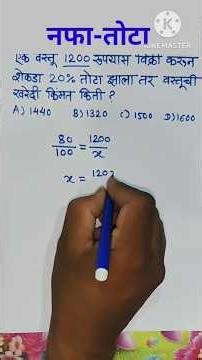 नफा-तोटा
KINEMASTER
एक वस्तू 1200 रुपयास विक्री करून
शेकडा 20% तोटा झाला तर वस्तूची
खरेदी किंमत किती ?
A) 1440 B) 1320 C) 1500 D) 1600
80/100 = 1200/x
x = 120